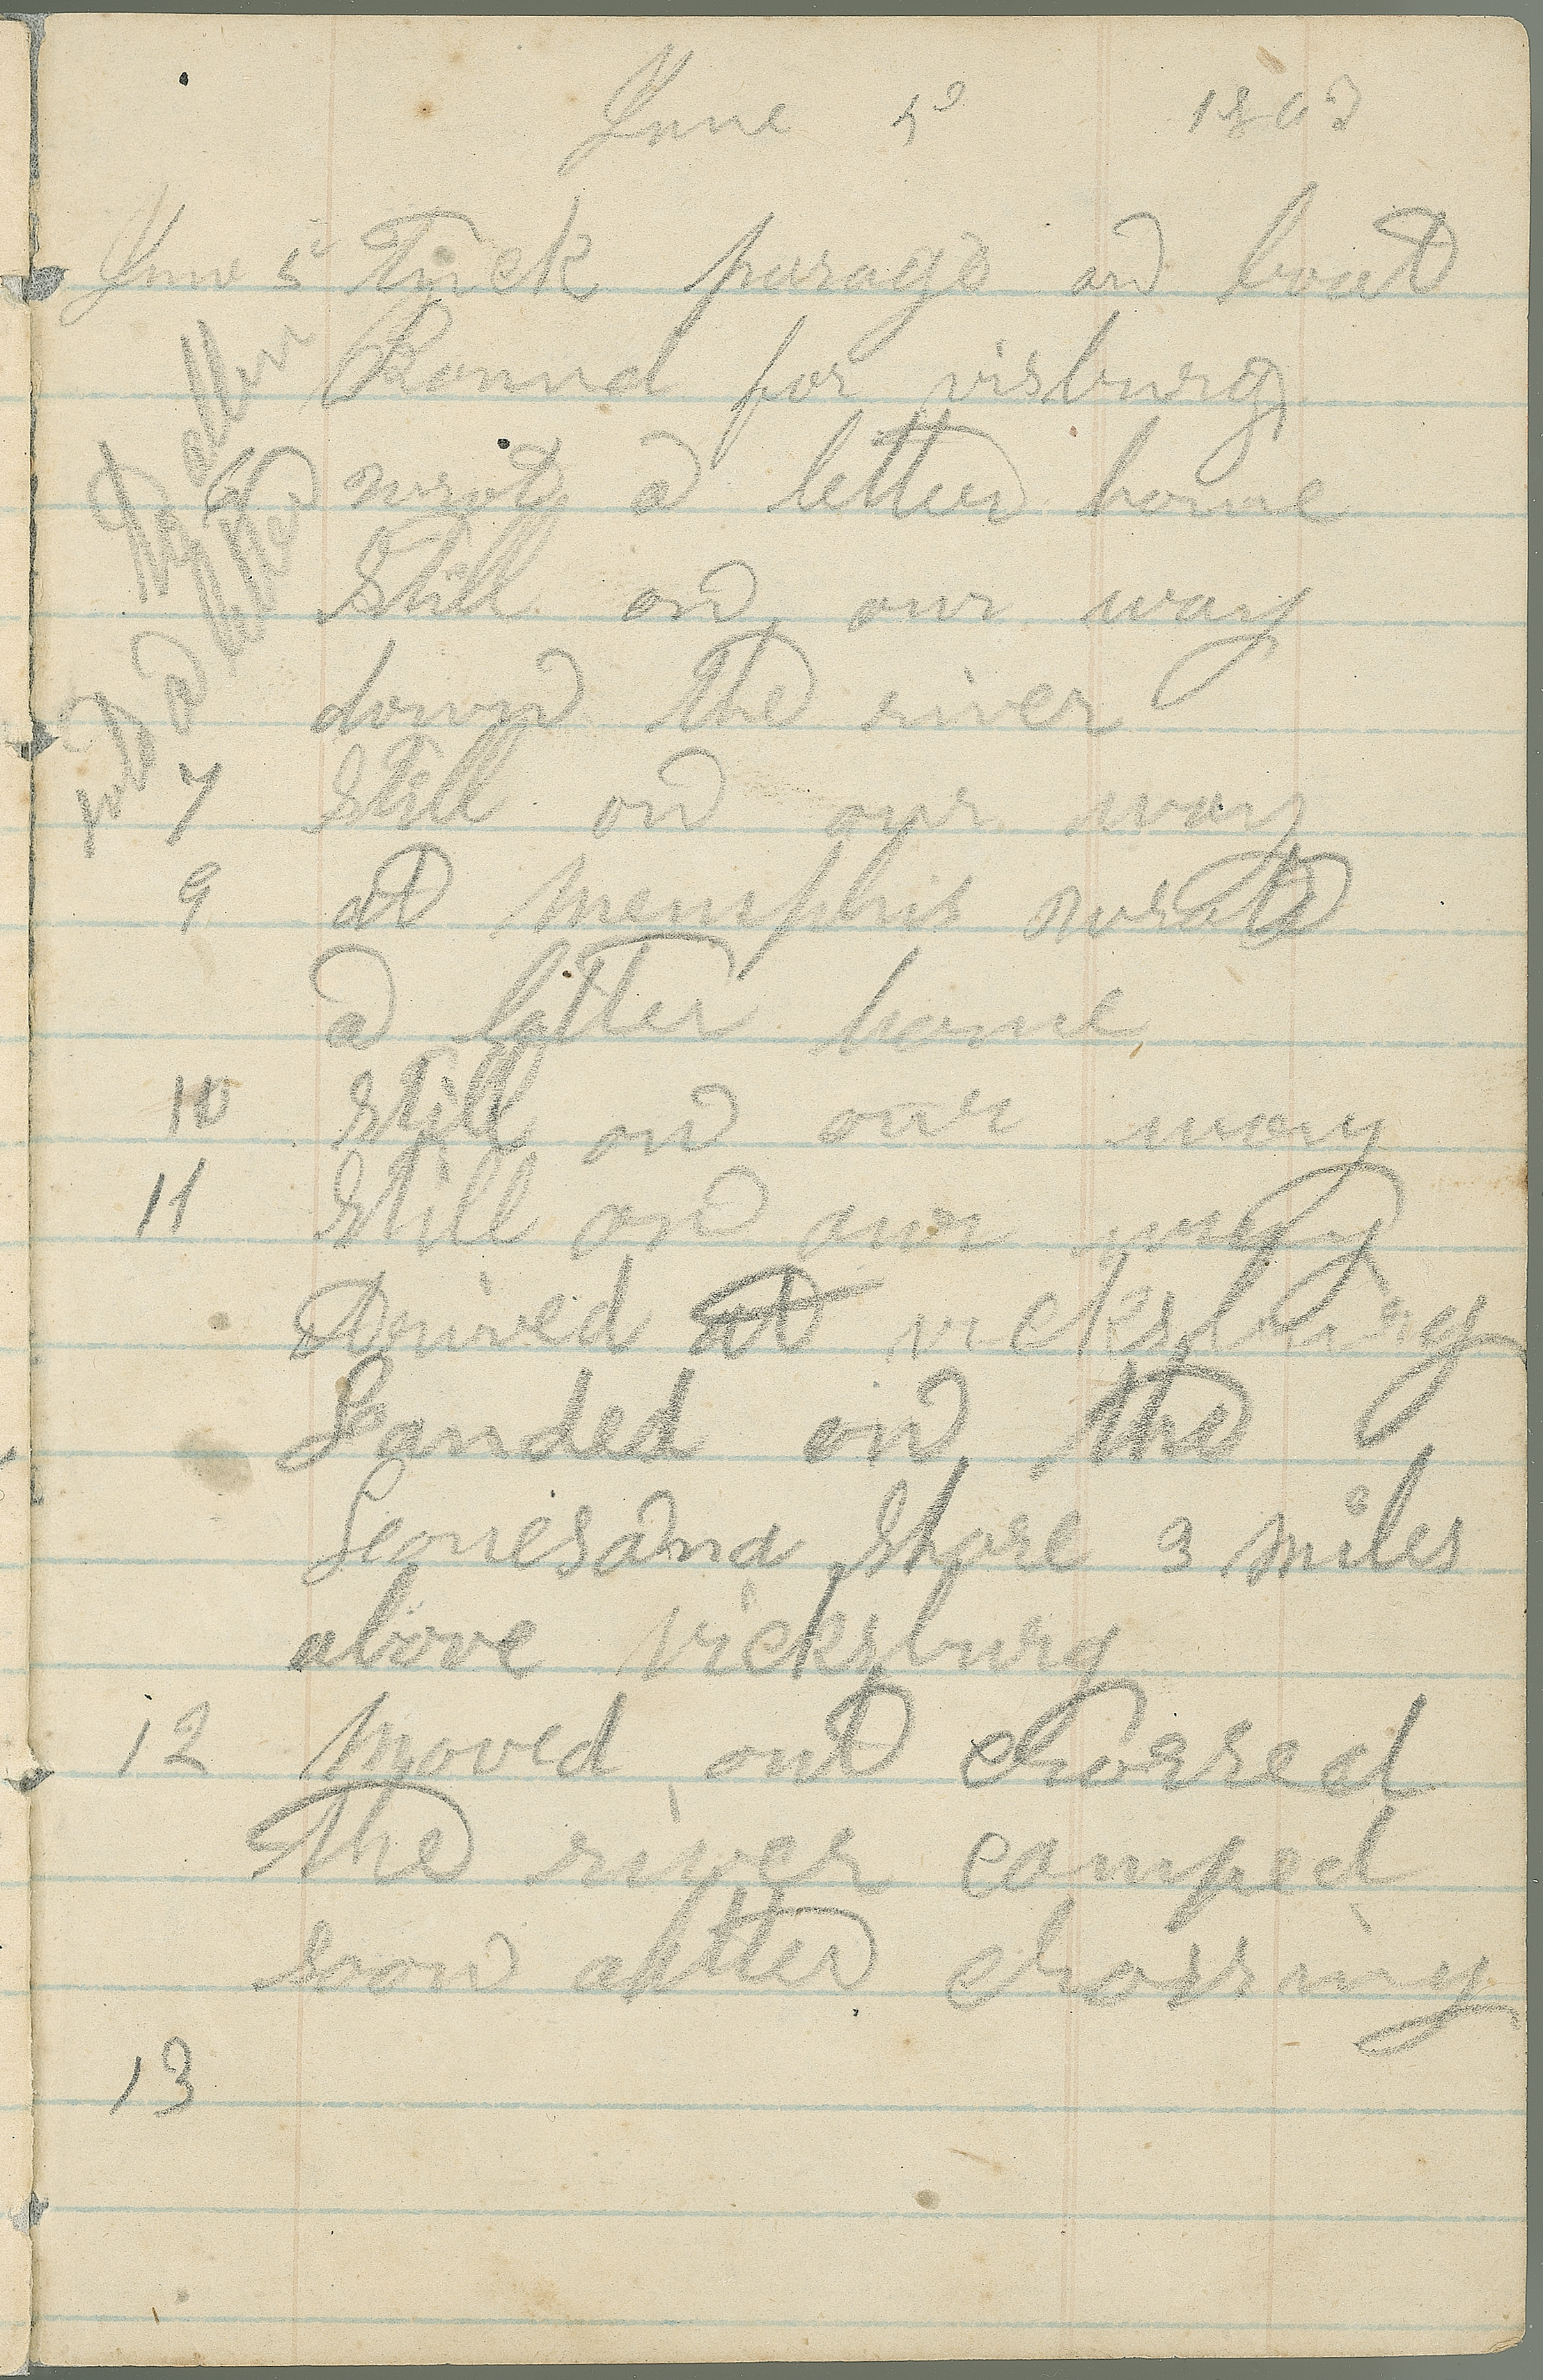 June 5 1863
June 5 Tuck passage on boat
Bound for visburg
6 wrote a letter home
Still on our way
down the river
7 Still on our way
9 at memphis wrote
a letter home
10 Still on our way
11 Still on our way
Arived at vicksburg
Landed on the
Louesana Shore 3 miles
above vicksburg
12 moved out crossed
the river camped
soon after crossing
13